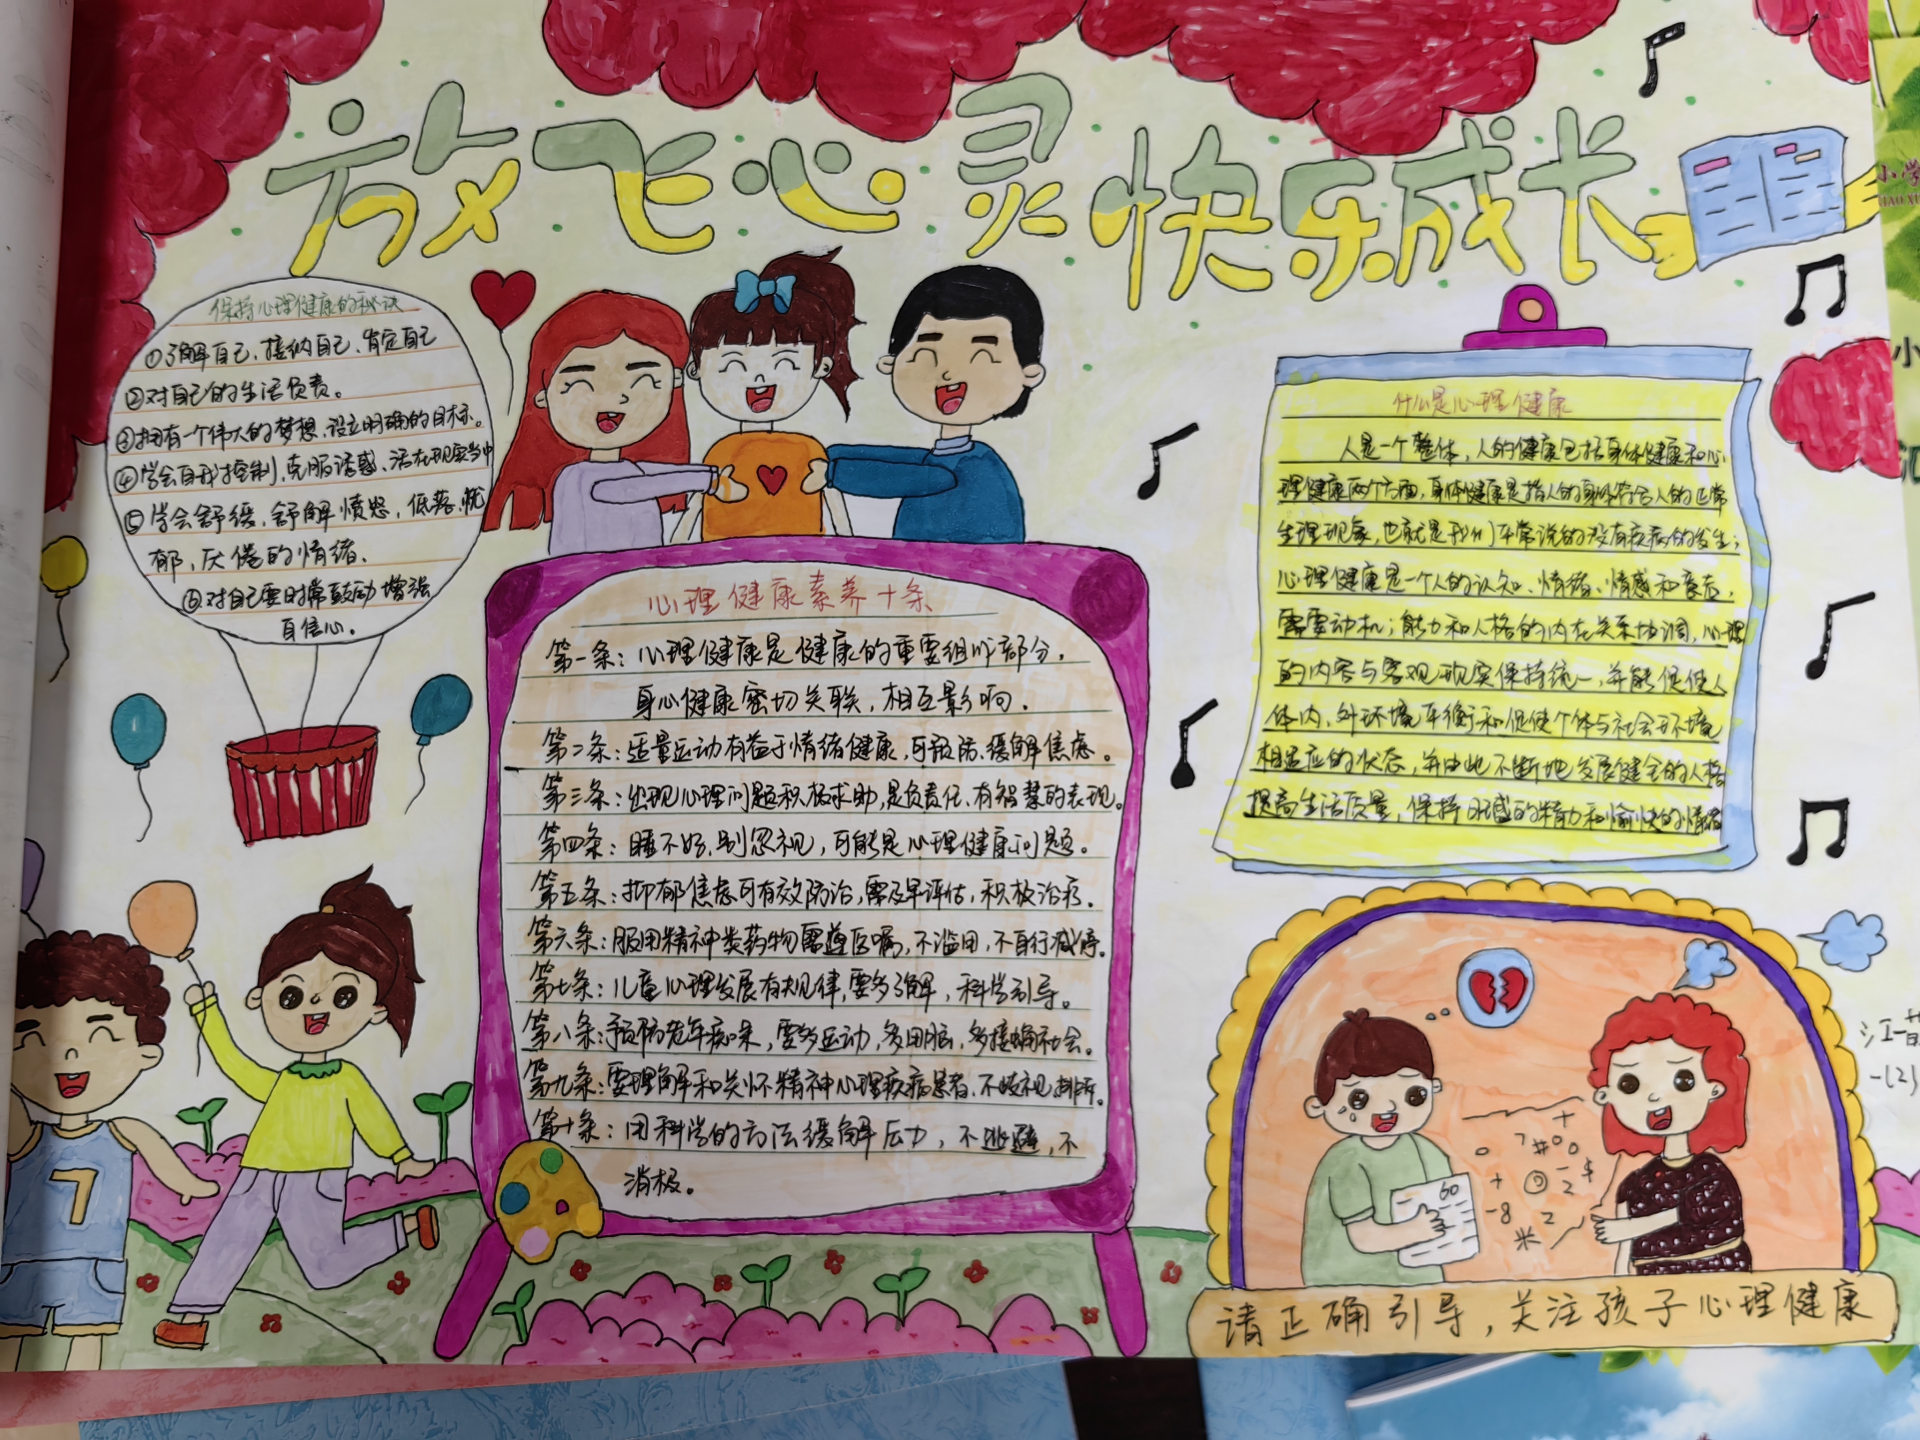 放飞心灵快乐成长
保持心理健康的秘诀
①了解自己、接纳自己、肯定自己
②对自己的生活负责。
③拥有一个伟大的梦想、设立明确的目标。
④学会自我控制,克服诱惑、活在现实当中
⑤学会舒缓、舒解愤怒,低落、忧
郁,厌倦的情绪、
⑥对自己要时常鼓励增强
自信心。
心理健康素养十条
第一条:心理健康是健康的重要组成部分,
身心健康密切关联,相互影响.
第二条:适量运动有益于情绪健康,可预防、缓解焦虑。
第三条:出现心理问题积极求助,是负责任、有智慧的表现。
第四条:睡不好,别忽视,可能是心理健康问题。
第五条:抑郁焦虑可有效防治,需及早评估,积极治疗.
第六条:服用精神类药物需遵医嘱,不滥用,不自行减停.
第七条:儿童心理发展有规律,要多了解,科学引导。
第八条:预防老年痴呆,要多运动,多用脑,多接触社会.
第九条:要理解和关怀精神心理疾病患者,不歧视,排斥.
第十条:用科学的方法缓解压力,不逃避,不
消极。
什么是心理健康
人是一个整体,人的健康包括身体健康和心
理健康两个方面,身体健康是指人的身体符合人的正常
生理现象,也就是我们平常说的没有疾病的发生;
心理健康是一个人的认知、情绪、情感和意志,
需要动机;能力和人格的内在关系协调,心理
的内容与客观现实保持统一,并能促使人
体内、外环境平衡和促使个体与社会环境
相适应的状态,并由此不断地发展健全的人格
提高生活质量,保持旺盛的精力和愉快的情绪
60
7 # 0 0
+ 2 $
-8 2
请正确引导,关注孩子心理健康
7
小学
小